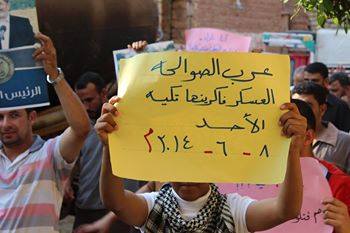 عرب الصوالحه
العسكر فاكرينها تكيه
الأحد
٨ - ٦ - ٢٠١٤ م
الرئيس